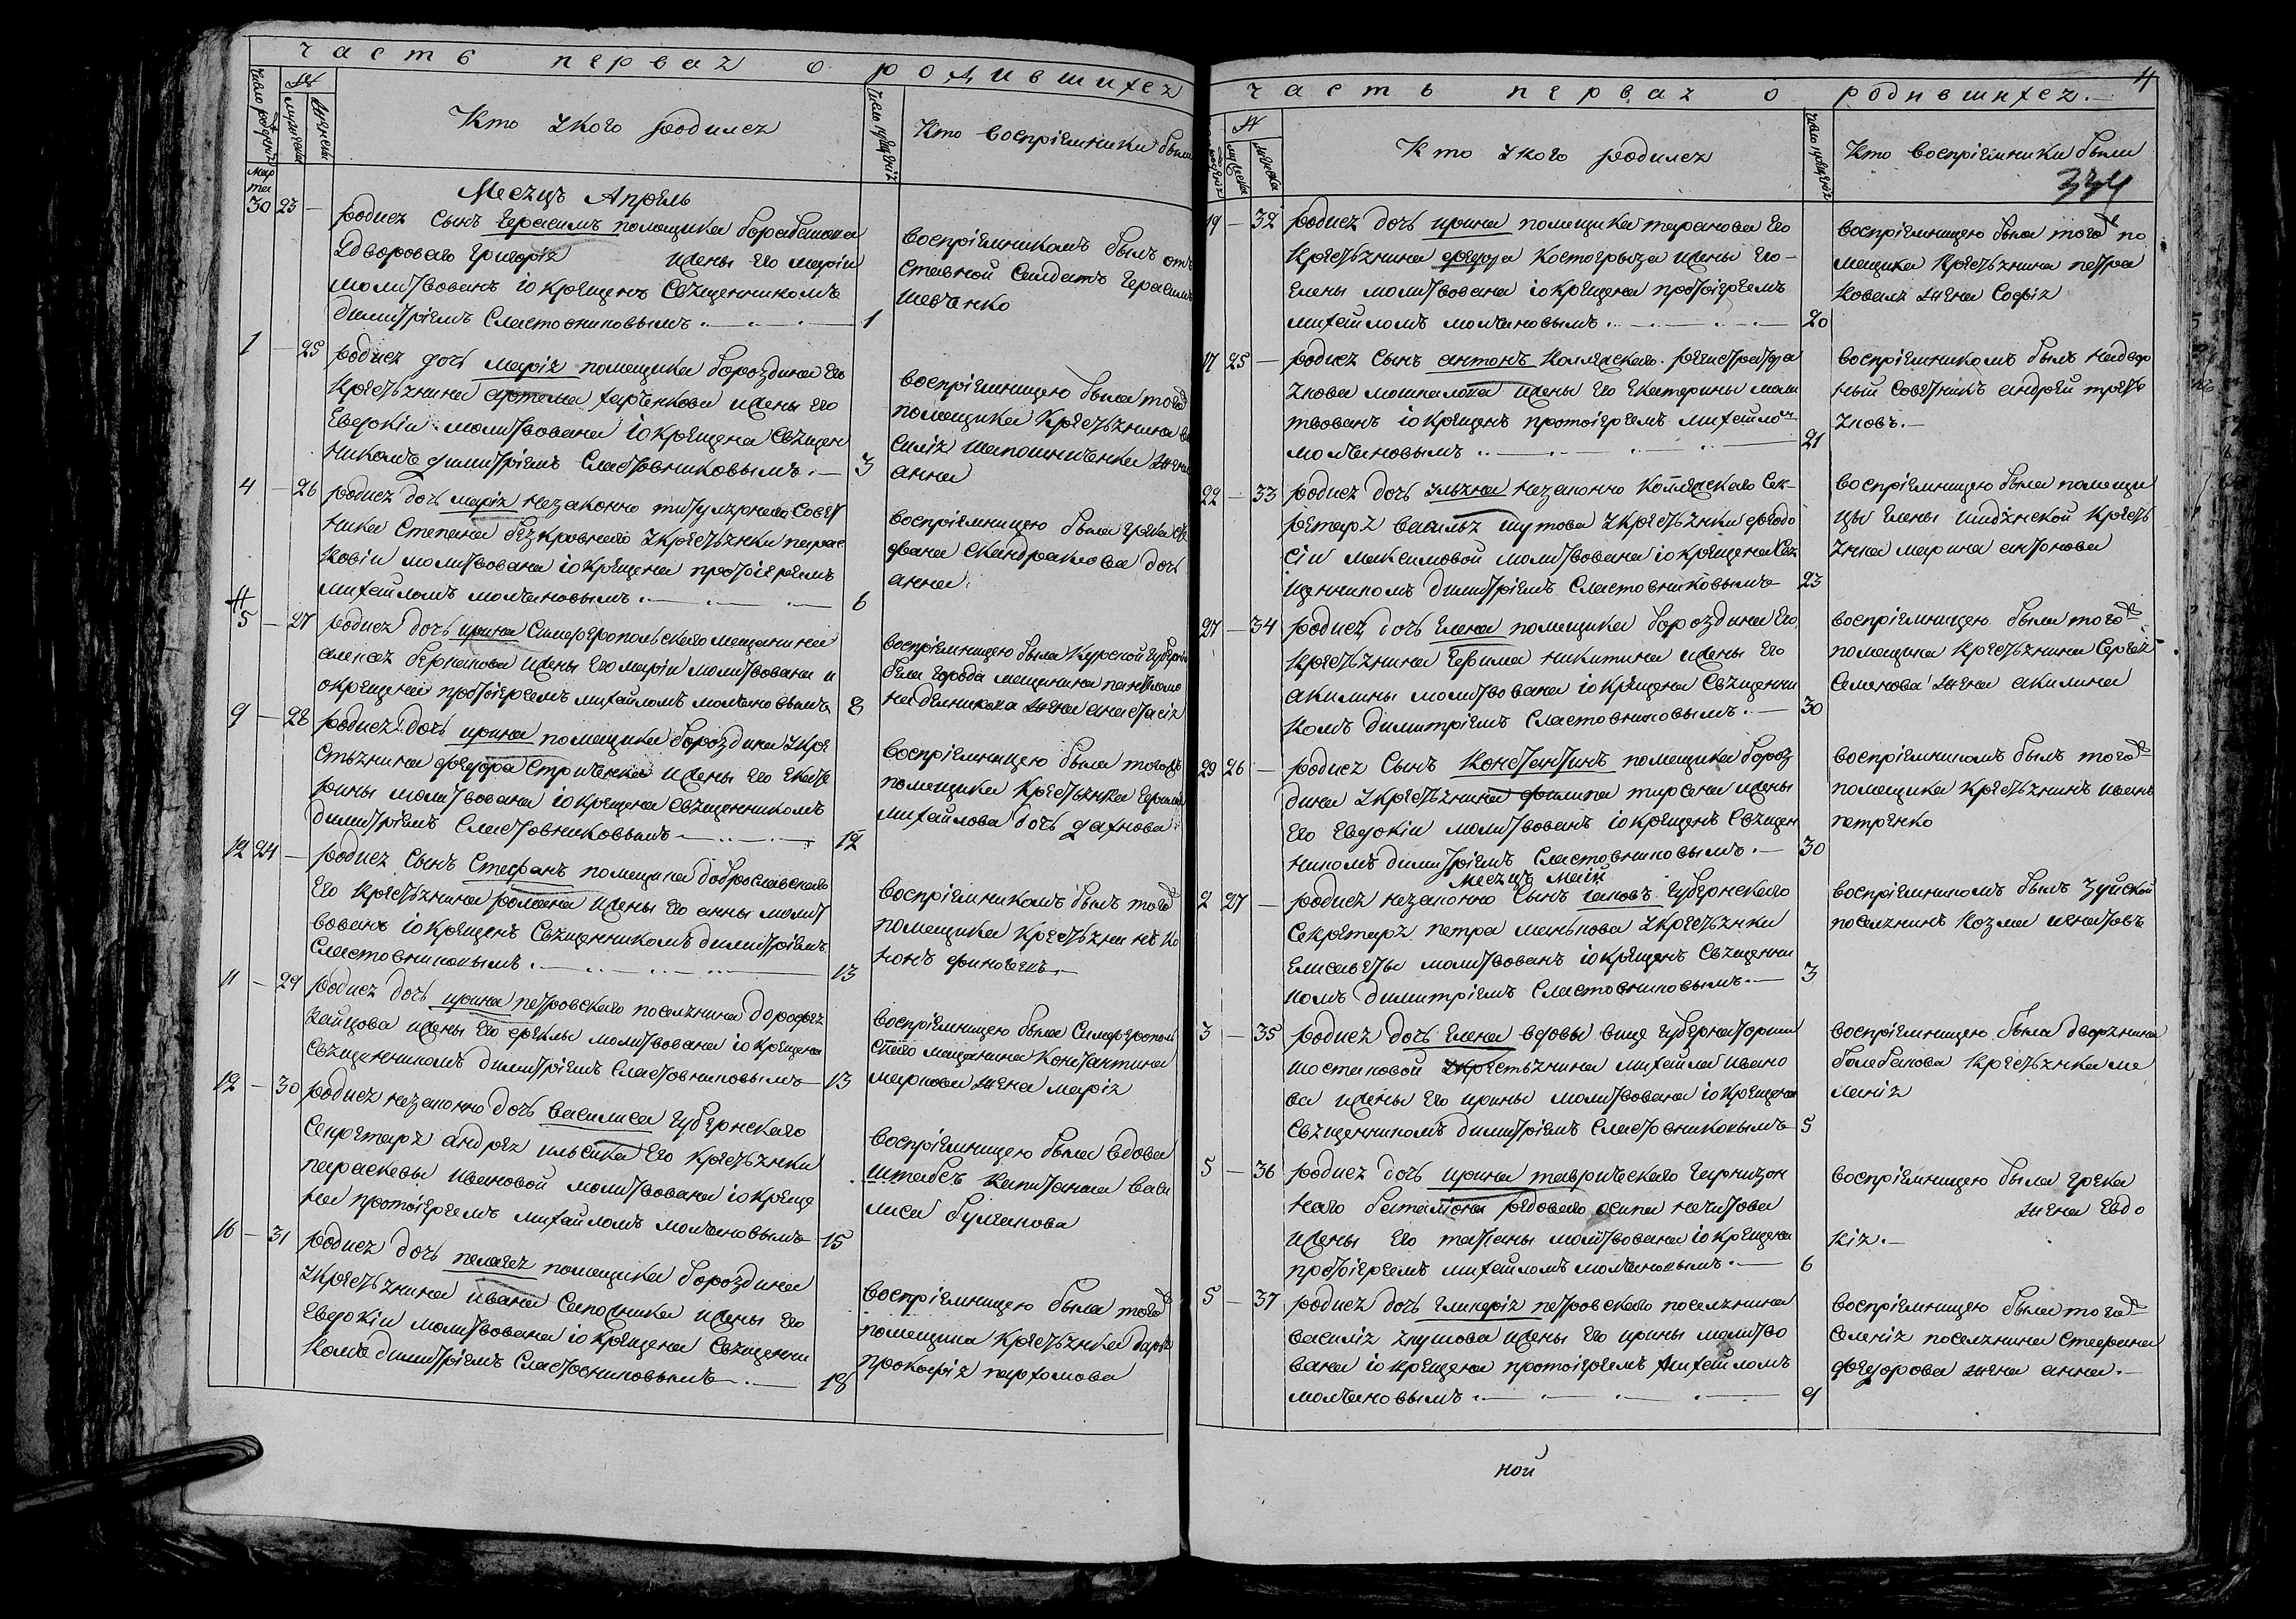 часть первая о родившихся
число рождения
№
мужеска
женска
Кто и кого родился
число крещения
Кто восприемники были
мар
та
Месяц Апрель
30 23 — родися Сынъ Герасимъ помещика Барабанова
Здвороваго Григория жены его марии
молитвованъ и окрещенъ Священникомъ
димитриемъ Сластовниковымъ 1
восприемникомъ былъ отъ
ставной Салдатъ Герасимъ
Шевченко
1 — 25 родися дочь мария помещика Бороздина Его
крестьянина артема харченкова жены Его
Евдокии молитвована и окрещена Священ
никомъ димитриемъ Сластовниковымъ 3
восприемницею была тогожъ
помещика Крестьянина ва
силия Шапошниченка жена
анна
4 — 26 родися дочь мария незаконно титулярнаго Совет
ника Степана безкровнаго Зкрестьянки парас
ковии молитвована и окрещена протоиереемъ
михаиломъ молчановымъ 6
восприемницею была грека
анна
5 — 27 родися дочь ирина Симферопольскаго мещанина
алексея жены Его марии молитвована и
окрещена протоиереемъ михаиломъ молчановымъ 8
восприемницею была Курской губернии
бела города мещанина
жена анастасия
9 — 28 родися дочь ирина помещика Бороздина Зкре
стьянина федора Стриченка жены Его Екате
рины молитвована и окрещена Священникомъ
димитриемъ Сластовниковымъ 12
восприемницею была тогожъ
помещика Крестьянка
михайлова дочь
12 24 — родися Сынъ Стефанъ помещика доброславскаго
Его Крестьянина романа жены Его анны молит
вованъ и окрещенъ Священникомъ димитриемъ
Сластовниковымъ 13
восприемникомъ былъ тогожъ
помещика крестьянинъ ко
нонъ
11 — 29 родися дочь ирина петровскаго поселянина дорофея
Зайцова жены Его феклы молитвована и окрещена
Священникомъ димитриемъ Сластовниковымъ 13
восприемницею была Симферополь
скаго мещанина Константина
маркова жена мария
12 — 30 родися незаконно дочь василиса Губернскаго
Секретаря андрея Его крестьянки
параскевы ивановой молитвована и окреще
на протоиереемъ михаиломъ молчановымъ 15
восприемницею была вдова
штабсъ капитанша васи
лиса булгакова
16 — 31 родися дочь пелагея помещика Бороздина
Зкрестьянина ивана Сапожника жены Его
Евдокии молитвована и окрещена Священни
комъ димитриемъ Сластовниковымъ 18
восприемницею была тогожъ
помещика крестьянка дарья
прокофия пархомова
часть первая о родившихся 4
№
мужеска
женска
Кто и кого родился
число крещения
Кто восприемники были
19 — 32 родися дочь ирина помещика таранова Его
Крестьянина федора Костогрыза жены Его
Елены молитвована и окрещена протоиереемъ
михаиломъ молчановымъ 20
восприемницею была тогожъ по
мещика крестьянина петра
Коваля жена София
17 25 — родися Сынъ антонъ Колляскаго регистратора
жены Его Екатерины моли
твованъ и окрещенъ протоиереемъ михаиломъ
молчановымъ 21
восприемникомъ былъ надвор
ный Советникъ андрей
22 — 33 родися дочь ульяна незаконно Колляскаго Сек
ретаря василья шутова Зкрестьянки феодо
сии максимовой молитвована и окрещена Свя
щенникомъ димитриемъ Сластовниковымъ 23
восприемницею была помещи
цы Елены крестъ
янка марина антонова
27 — 34 родися дочь Елена помещика Бороздина Его
крестьянина Ефима никитина жены Его
акилины молитвована и окрещена Священни
комъ димитриемъ Сластовниковымъ 30
восприемницею была тогожъ
помещика крестьянина Сергея
Семенова жена акилина
29 26 — родися Сынъ Константинъ помещика Борозъ
дина Зкрестьянина филипа жены
Его Евдокии молитвованъ и окрещенъ Священ
никомъ димитриемъ Сластовниковымъ 30
восприемникомъ былъ тогожъ
помещика крестьянинъ иванъ
петренко
Месяцъ Май
2 27 — родися незаконно Сынъ иаковъ Губернскаго
Секретаря петра манькова Зкрестьянки
Елисаветы молитвованъ и окрещенъ Священни
комъ димитриемъ Сластовниковымъ 3
восприемникомъ былъ Зуйской
поселянинъ Козма игнатовъ
3 — 35 родися дочь Елена вдовы вице Губернаторши
шостаковой Зкрестьянина михаила ивано
ва жены Его ирины молитвована и окрещена
Священникомъ димитриемъ Сластовниковымъ 5
восприемницею была дворянина
балабанова крестьянка ме
лания
5 — 36 родися дочь ирина таврическаго Гарнизон
наго баталиона рядоваго осипа
жены Его татианы молитвована и окрещена
протоиереемъ михаиломъ молчановымъ 6
восприемницею была грека
жена Евдо
кия
5 — 37 родися дочь Гликерия петровскаго поселянина
василия глушова жены Его ирины молитво
вана и окрещена протоиереемъ михаиломъ
молчановымъ 9
восприемницею была тогожъ
Селения поселянина Стефана
федорова жена анна
ной